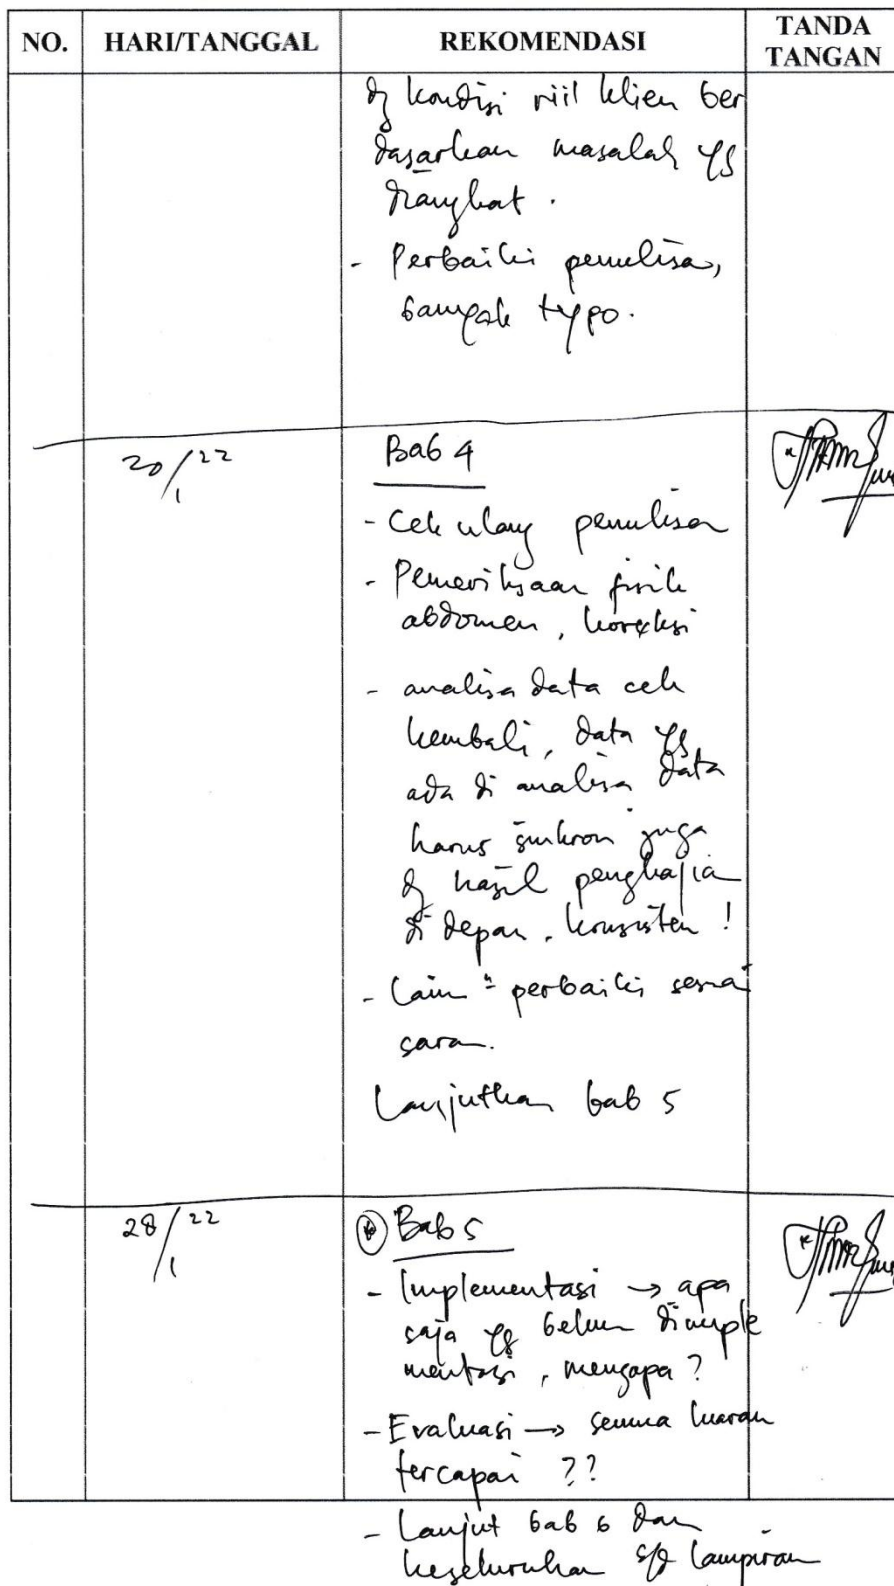 NO. HARI/TANGGAL REKOMENDASI TANDA TANGAN
dg kondisi riil klien ber
dasarkan masalah yg
diangkat.
- Perbaiki penulisan,
banyak typo.
20/1 22
Bab 4
- Cek ulang penulisan
- Pemeriksaan fisik
abdomen, koreksi
- analisa data cek
kembali, data yg
ada di analisa data
harus sinkron juga
dg hasil pengkajian
di depan. konsisten!
- Lain" perbaiki sesuai
saran.
Lanjutkan bab 5
28/1 22
Bab 5
- Implementasi → apa
saja yg belum dimple
mentasi, mengapa?
- Evaluasi → semua luaran
tercapai ??
- Lanjut bab 6 dan
keseluruhan s/d lampiran